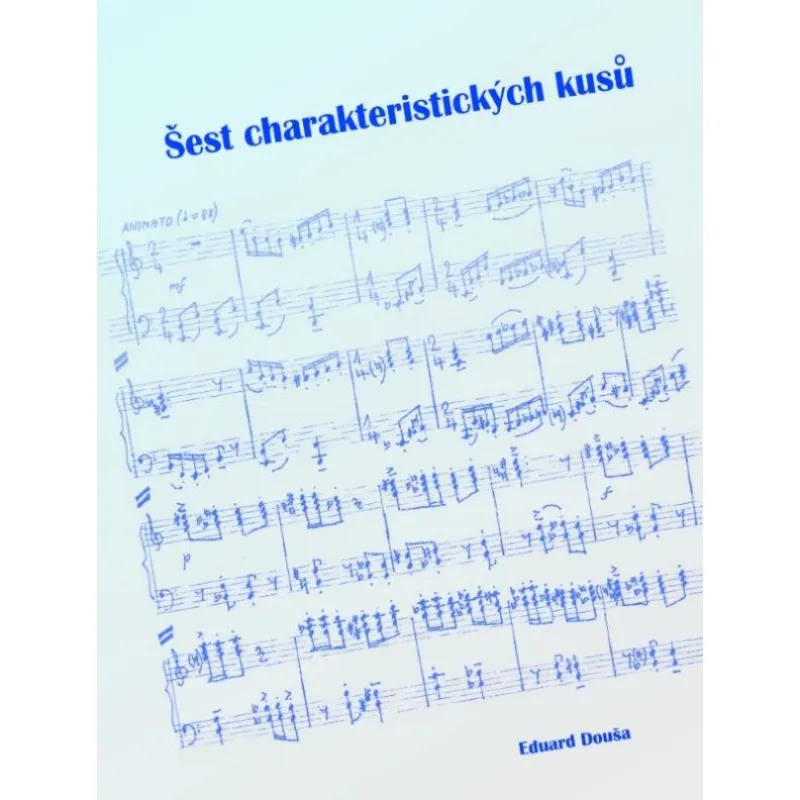 Šest charakteristických kusů
ANIMATO (♩=88)
mf
p
f
Eduard Douša